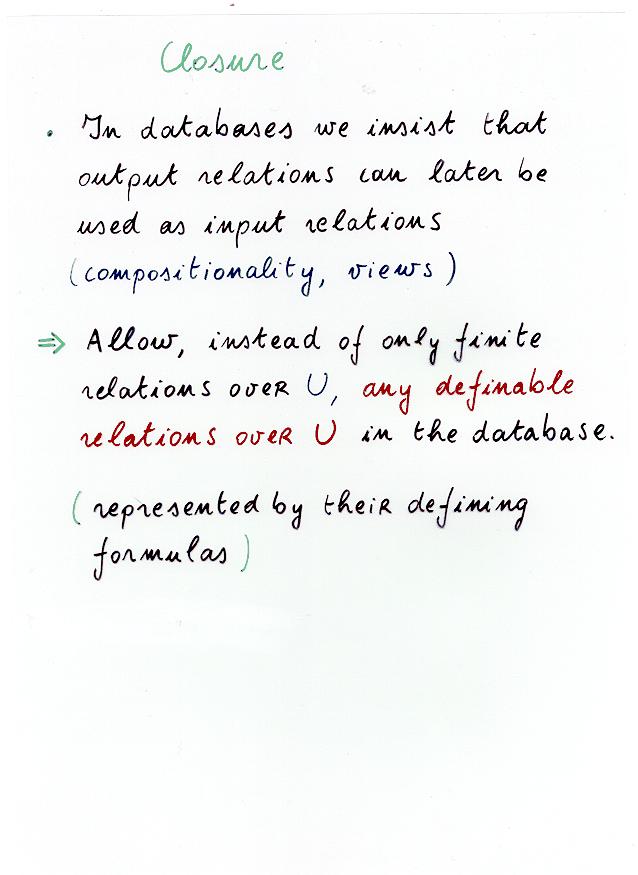 Closure
• In databases we insist that
output relations can later be
used as input relations
(compositionality, views)
⇒ Allow, instead of only finite
relations over U, any definable
relations over U in the database.
(represented by their defining
formulas)